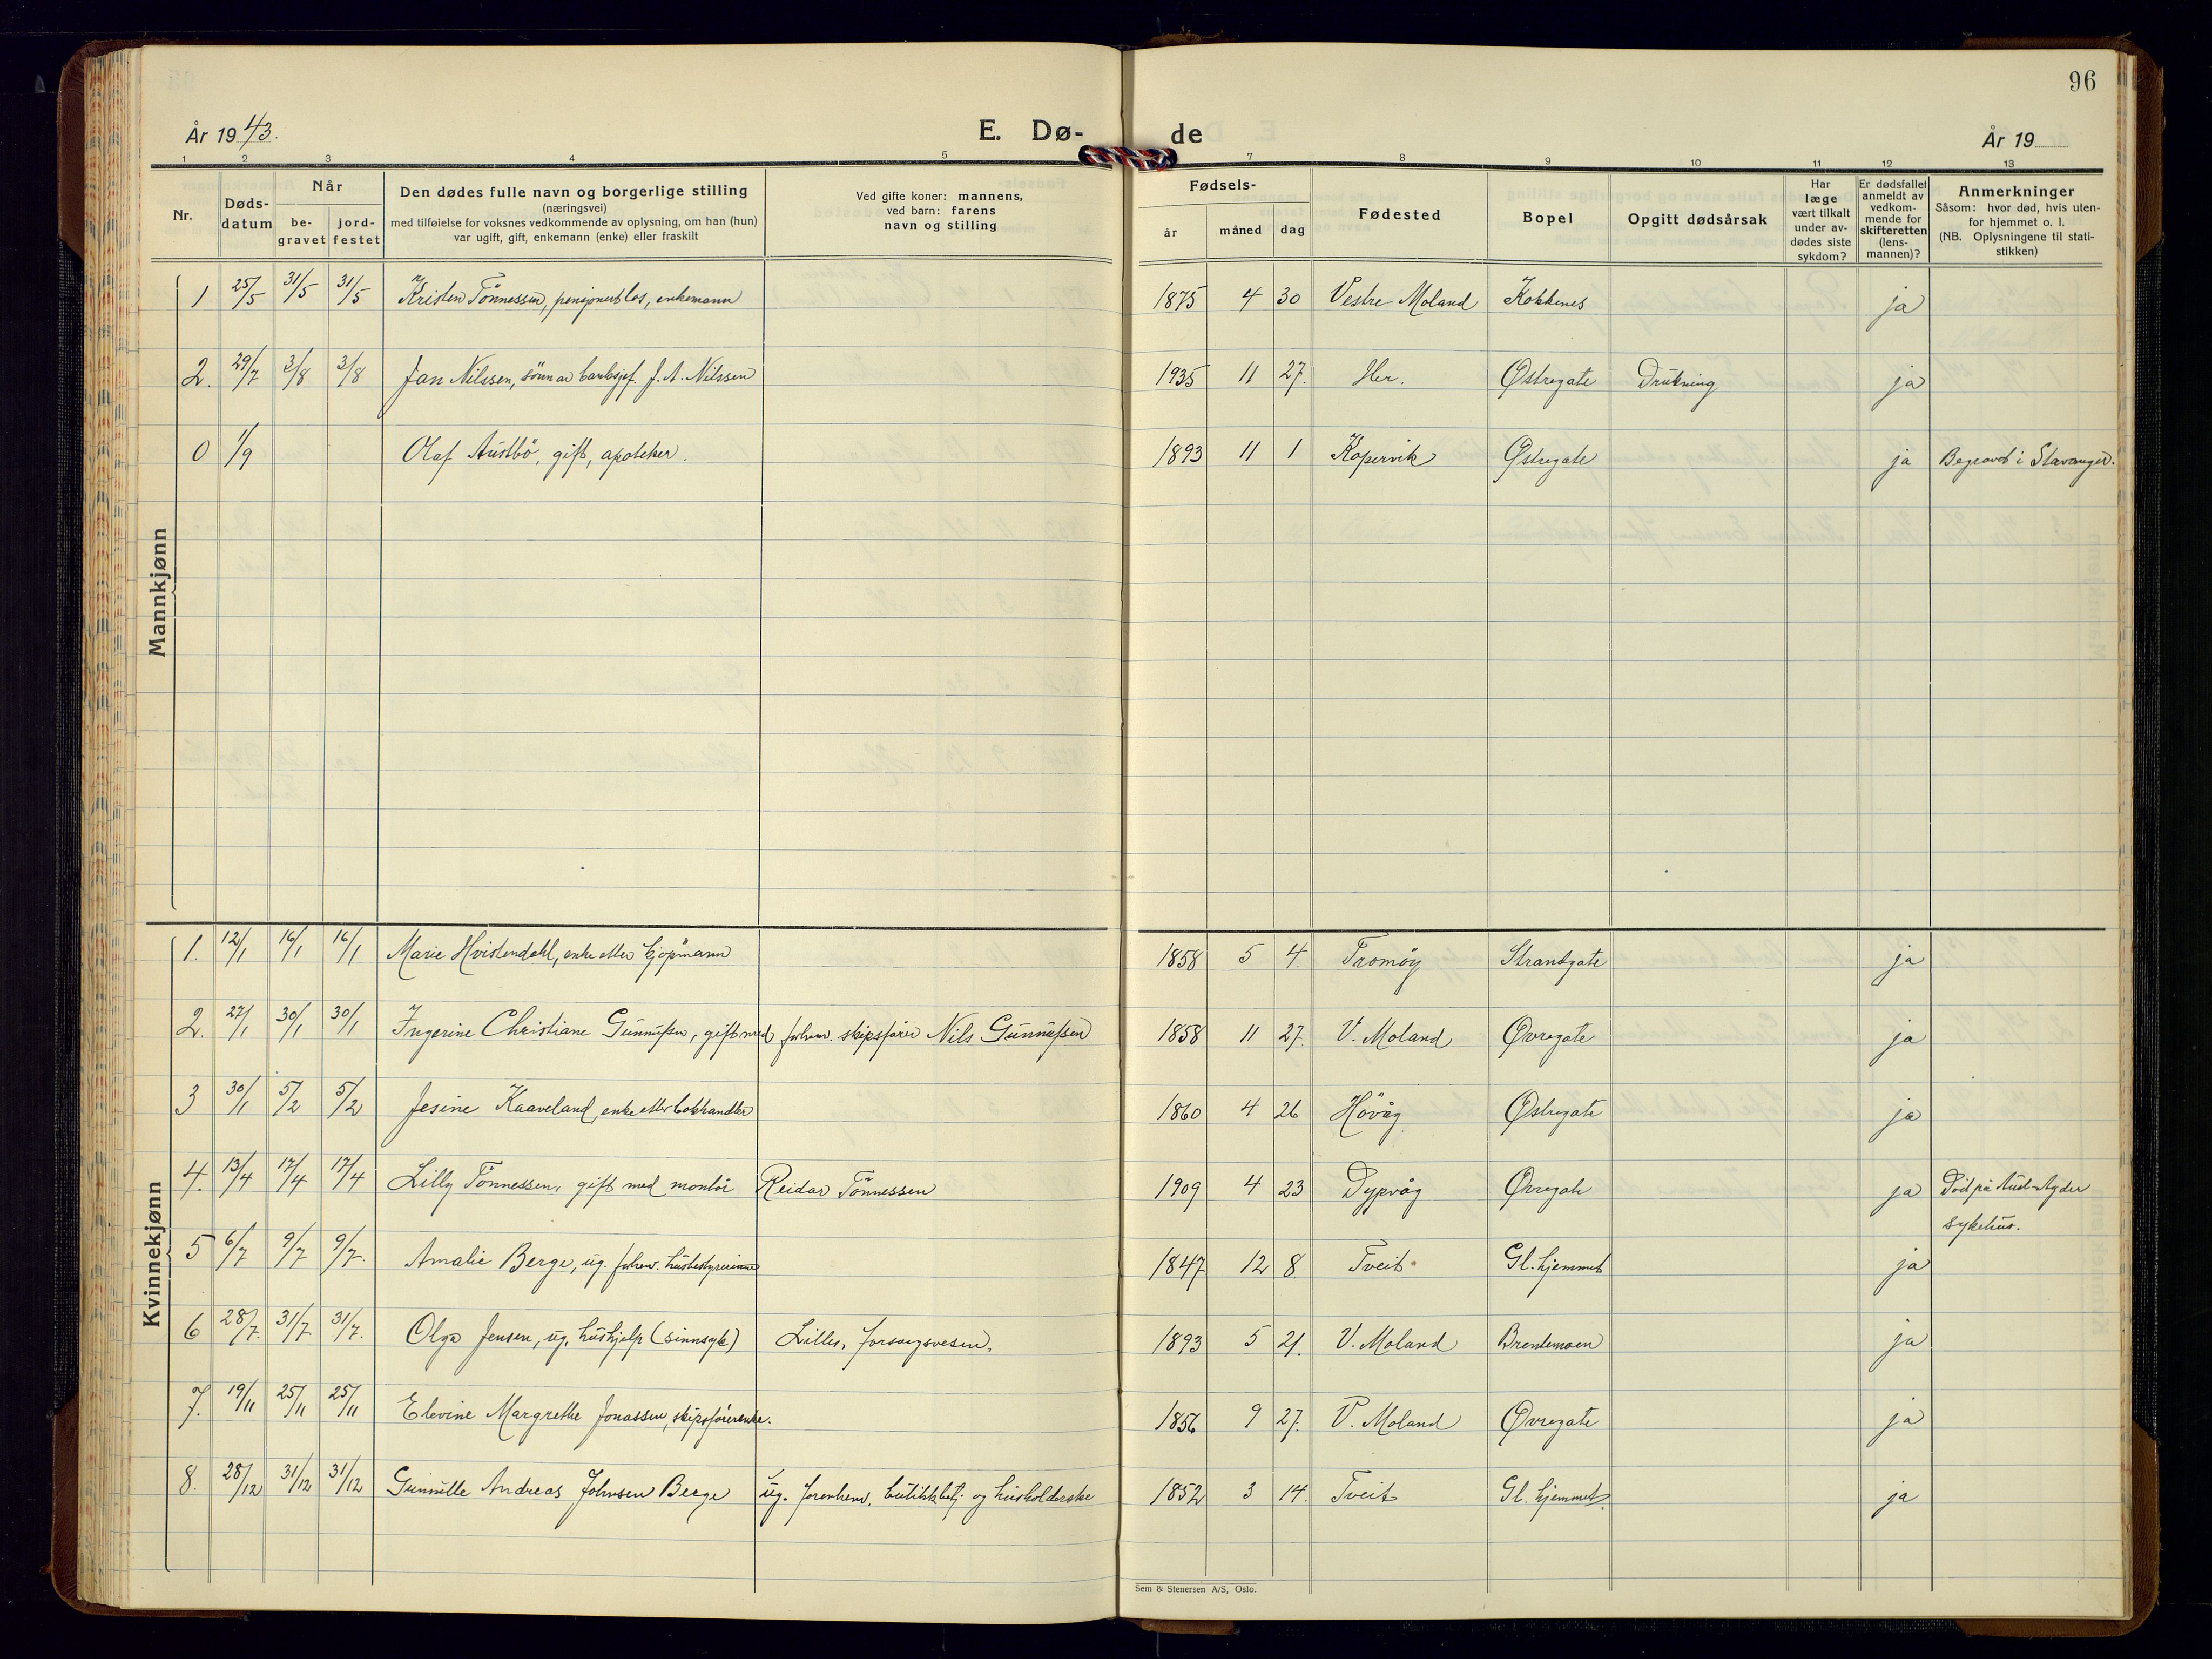 96
År 1943.
E. Dø-
de
År 19
1 2 3 4 5 7 8 9 10 11 12 13
Nr.
Døds-
datum
Når
be-
gravet
jord-
festet
Den dødes fulle navn og borgerlige stilling
(næringsvei)
med tilføielse for voksnes vedkommende av oplysning, om han (hun)
var ugift, gift, enkemann (enke) eller fraskilt
Ved gifte koner: mannens,
ved barn: farens
navn og stilling
Fødsels-
år måned dag
Fødested
Bopel
Opgitt dødsårsak
Har
læge
vært tilkalt
under av-
dødes siste
sykdom?
Er dødsfallet
anmeldt av
vedkom-
mende for
skifteretten
(lens-
mannen)?
Anmerkninger
Såsom: hvor død, hvis uten-
for hjemmet o. l.
(NB. Oplysningene til stati-
stikken)
Mannkjønn
1 25/5 31/5 31/5 Kristen Tönnessen, pensjonert los, enkemann 1875 4 30 Vestre Moland Kokkenes ja
2. 29/7 3/8 3/8 Jan Nilssen, sönn av banksjef. J. A. Nilssen 1935 11 27. Her. Østregate Drukning ja
0 1/9 Olaf Austbö, gift, apoteker. 1893 11 1 Kopervik Østregate ja Begravet i Stavanger.
Kvinnekjønn
1. 12/1 16/1 16/1 Marie Hvistendahl, enke etter kjöpmann 1858 5 4. Tromöy Strandgate ja
2. 27/1 30/1 30/1 Ingerine Christiane Gunnufsen, gift med forhenv. skipsförer Nils Gunnufsen 1858 11 27. V. Moland Øvregate ja
3 30/1 5/2 5/2 Jesine Kaaveland, enke etter bokhandler 1860 4 26 Hövåg Østregate ja
4. 13/4 17/4 17/4 Lilly Tönnessen, gift med montör Reidar Tönnessen 1909 4 23 Dypvåg Øvregate ja Död på Aust-Agder
sykehus.
5 6/7 9/7 9/7. Amalie Berge, ug. forhenv. husbestyrerinne 1847 12 8 Tveit Gl. hjemmet ja
6 28/7. 31/7 31/7. Olga Jensen, ug. hushjelp (sinnsyk) Lilles. forsorgsvesen. 1893 5 21. V. Moland Brentemoen ja
7. 19/11 25/11 25/11 Elevine Margrethe Jonassen, skipsförerenke. 1856 9 27. V. Moland Øvregate ja
8. 28/12 31/12 31/12 Gunnulle Andreas Johnsen Berge ug. forenhenv. butikkbetj. og husholderske 1852 3 14. Tveit Gl. hjemmet. ja
Sem & Stenersen A/S, Oslo.